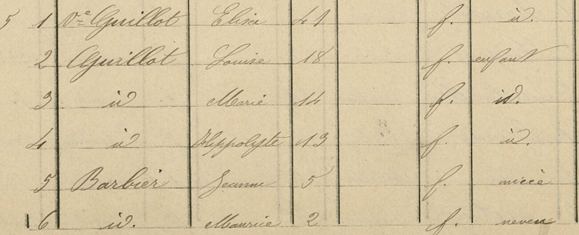 5 1 Vve Guillot Elisa 41 f. id.
2 Guillot Louise 18 f. enfant
3 id Marie 14 f. id.
4 id Hippolyte 13 f. id.
5 Barbier Jeanne 5 f. nièce
6 id. Maurice 2 f. neveu